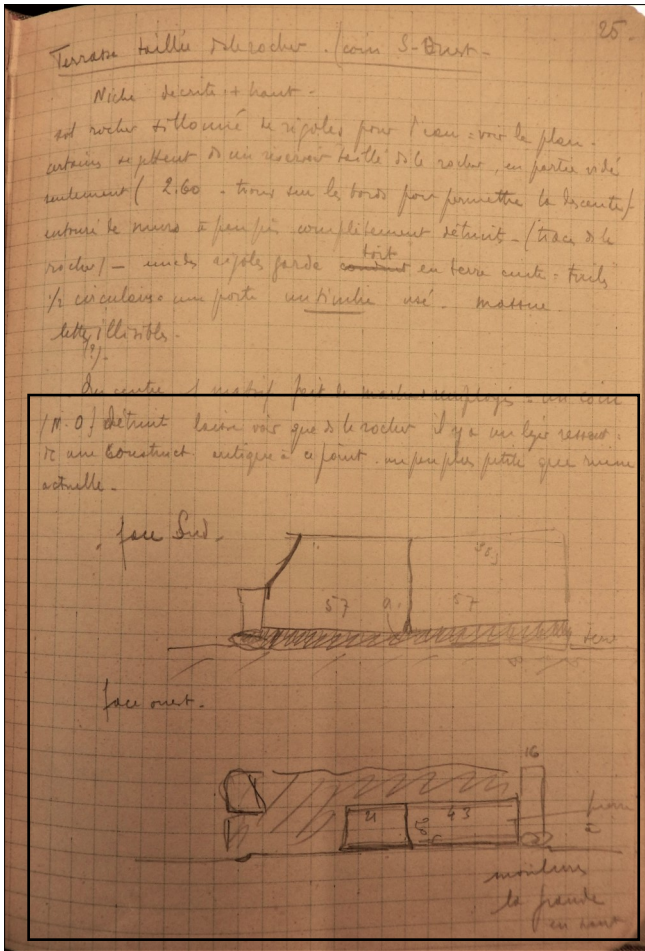 25.
Terrasse taillée ds le rocher. (coin S-Ouest -
Niche décrite + haut -
sol rocher sillonné de rigoles pour l'eau = voir le plan.
certains se jettent ds un reservoir taillé ds le rocher, en partie vidé
seulement ( 2.60 - trous sur les bords pour permettre la descente)
entouré de murs à peu près complètement détruits - (trace ds le
rocher) - une des rigoles garde toit en terre cuite = tuiles
1/2 circulaires une porte un timbre usé. massue.
lettres illisibles.
(?).
Au centre 1 massif fait de marbres remployés - un coin
(N.O) détruit laisse voir que ds le rocher il y a un léger ressaut:
une construct antique à ce point. un peu plus petite que ruine
actuelle -
face Sud.
57
a.
57
face ouest.
16
21
43
moulures
la grande
en